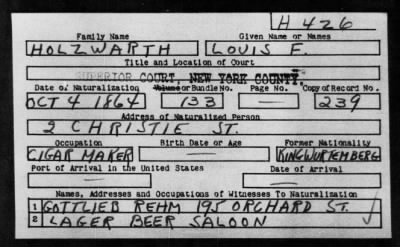 H 426
Family Name Given Name or Names
HOLZWARTH LOUIS F.
Title and Location of Court
SUPERIOR COURT, NEW YORK COUNTY.
Date of Naturalization Volume or Bundle No. Page No. Copy of Record No.
OCT 4 1864 133 — 239
Address of Naturalized Person
2 CHRISTIE ST.
Occupation Birth Date or Age Former Nationality
CIGAR MAKER — KING WURTEMBERG
Port of Arrival in the United States Date of Arrival
— —
Names, Addresses and Occupations of Witnesses To Naturalization
1 GOTTLIEB REHM 195 ORCHARD ST.
2 LAGER BEER SALOON